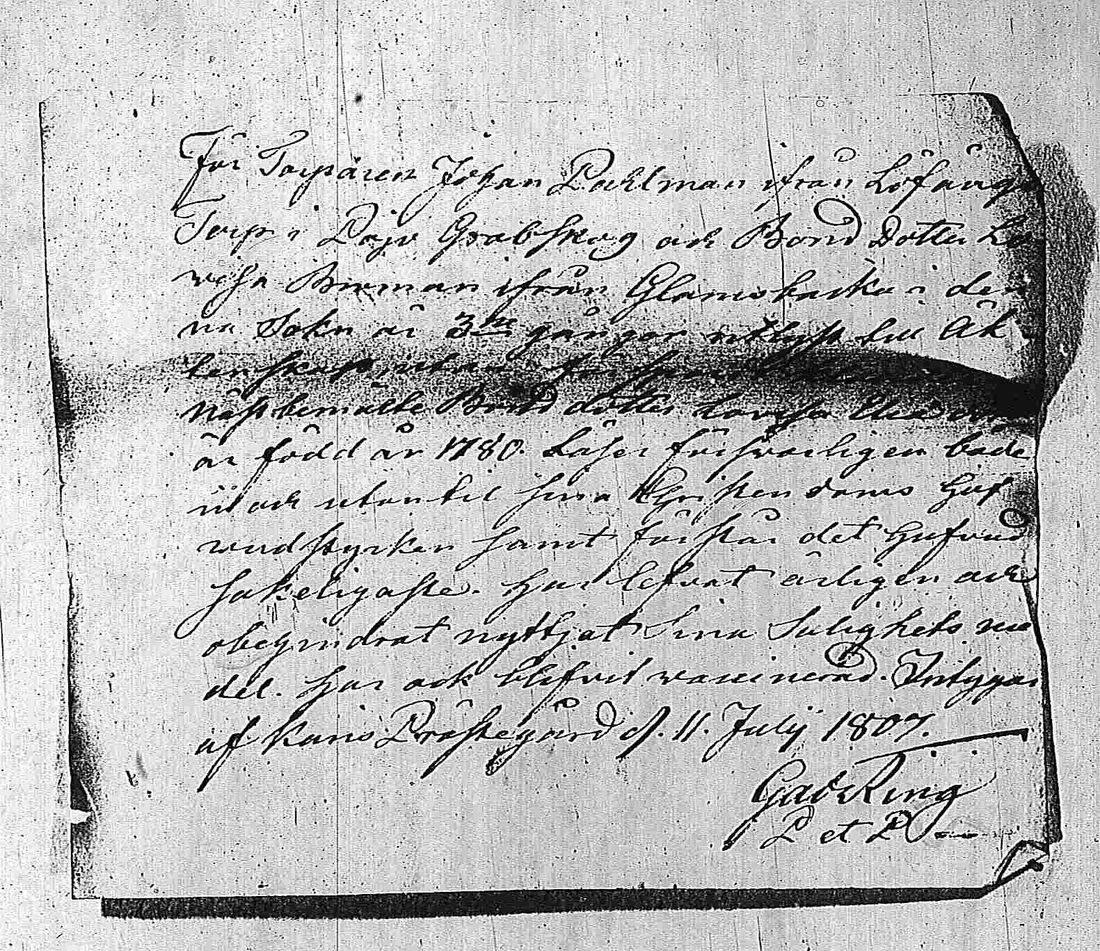 För Torparen Johan Pahlman ifrån Löfånge
Torp i Pojo Grabskog och Bond Dotter Lo
visa Birman ifrån Glamsbacka i den
na Sokn är 3ne gånger utlyst till Äk
tenskap, utan
näst bemälte Bond dotter Lovisa
är född år 1780. Läser försvarligen både
i och utan til sina Christendoms Huf
vudstycken samt förstår det hufvud
sakeligaste. Har lefvat ärligen och
obehindrat nyttjat Sina Salighets me
del. Har ock blifvit vaccinerad. Intygar
af Karis Prästegård d. 11. Julÿ 1807.
Gad Ring
P et P